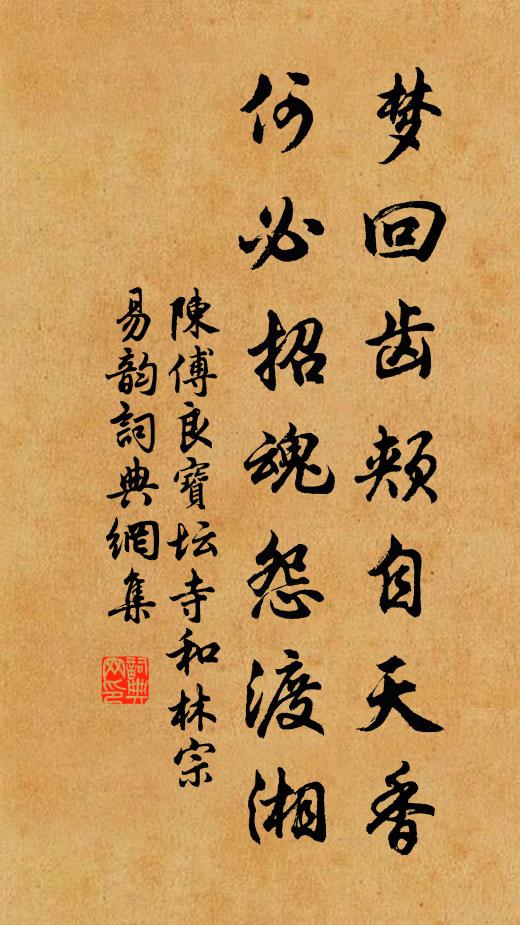 梦回齿颊自天香
何必招魂怨渡湘
陳傅良寶坛寺和林宗
易韵詞典網集
詞典
网印